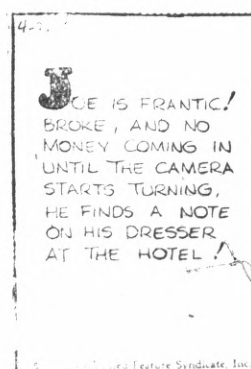 JOE IS FRANTIC!
BROKE, AND NO
MONEY COMING IN
UNTIL THE CAMERA
STARTS TURNING,
HE FINDS A NOTE
ON HIS DRESSER
AT THE HOTEL!
Feature Syndicate, Inc.